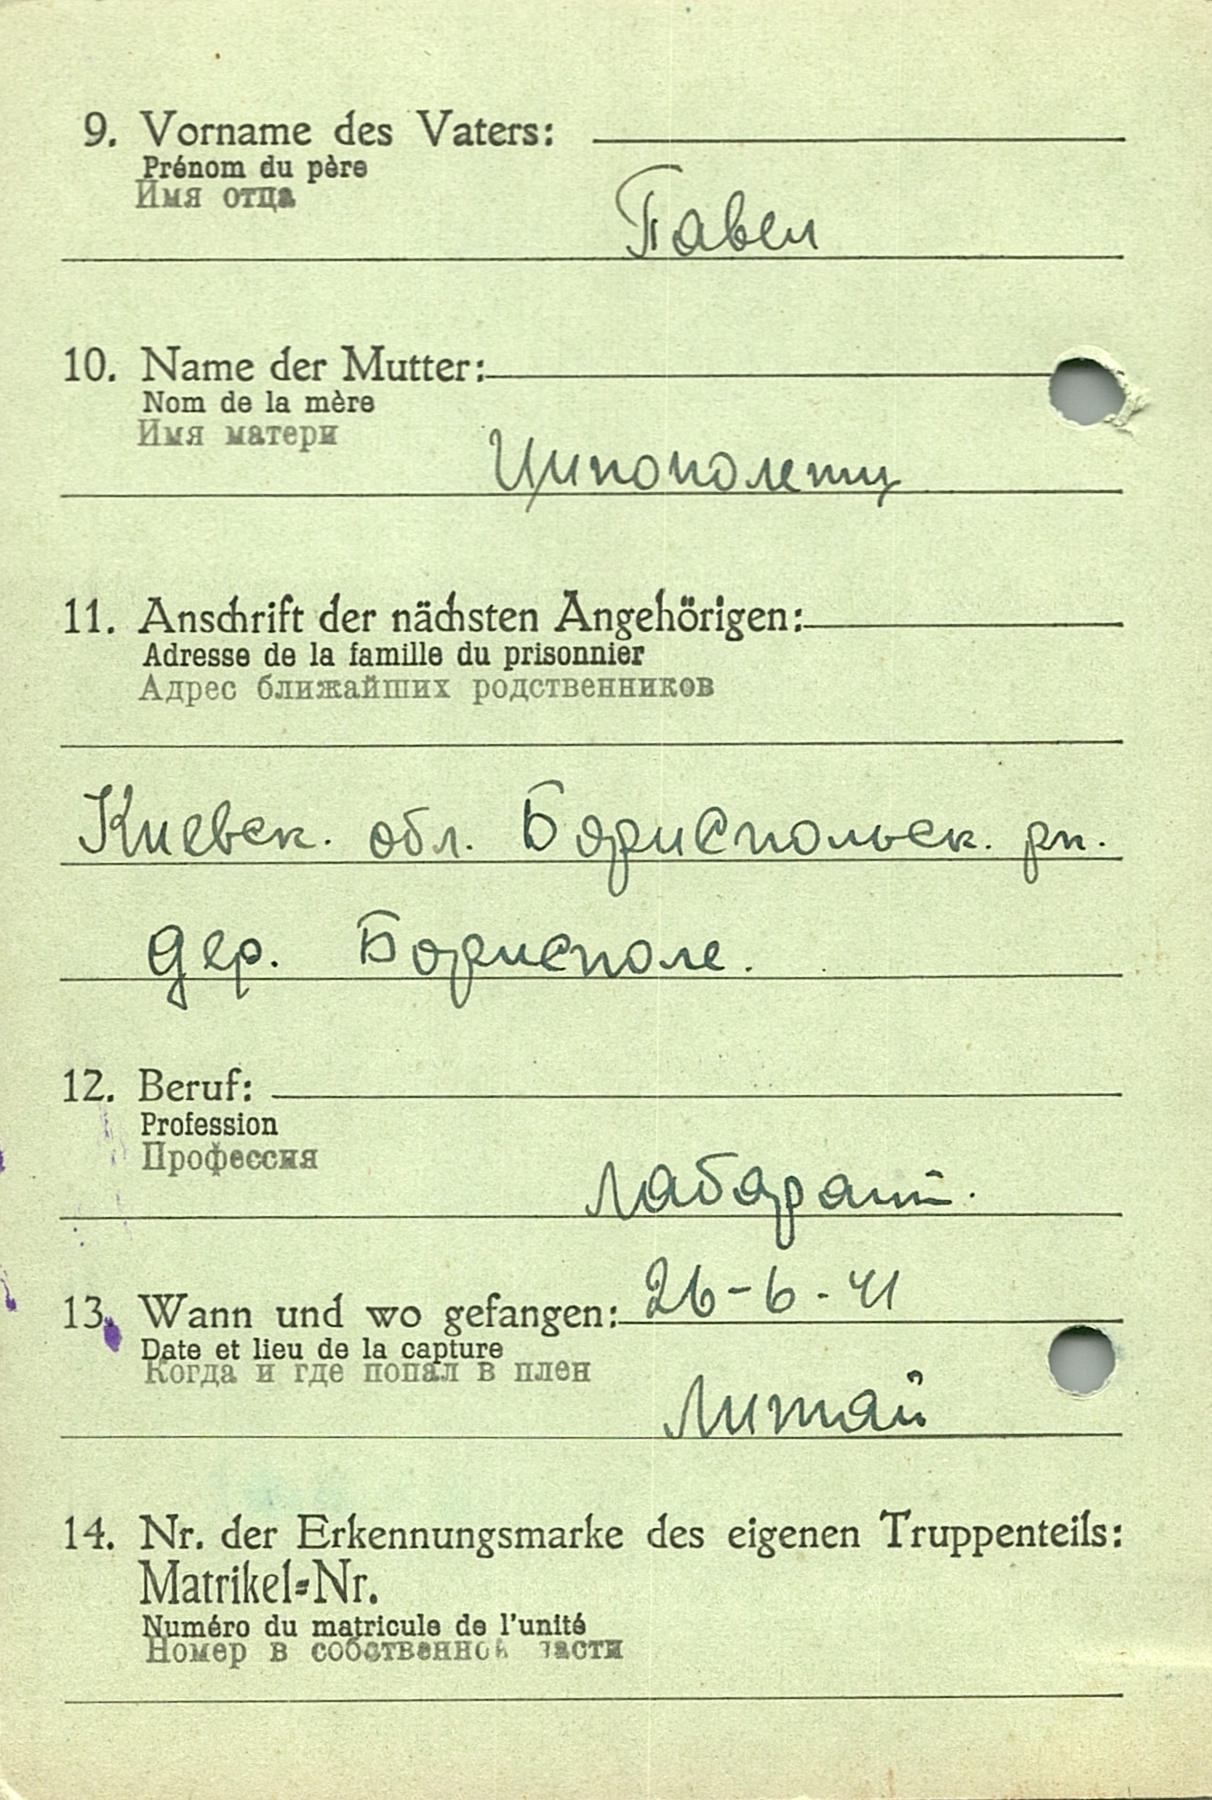 9. Vorname des Vaters:
Prénom du père
Имя отца
Павел
10. Name der Mutter:
Nom de la mère
Имя матери
Ципополетц
11. Anschrift der nächsten Angehörigen:
Adresse de la famille du prisonnier
Адрес ближайших родственников
Киевск. обл. Бориспольск. рн.
дер. Борисполе.
12. Beruf:
Profession
Профессия
Лаборант.
26-6-41
13. Wann und wo gefangen:
Date et lieu de la capture
Когда и где попал в плен
Литай
14. Nr. der Erkennungsmarke des eigenen Truppenteils:
Matrikel=Nr.
Numéro du matricule de l'unité
Номер в собственной части